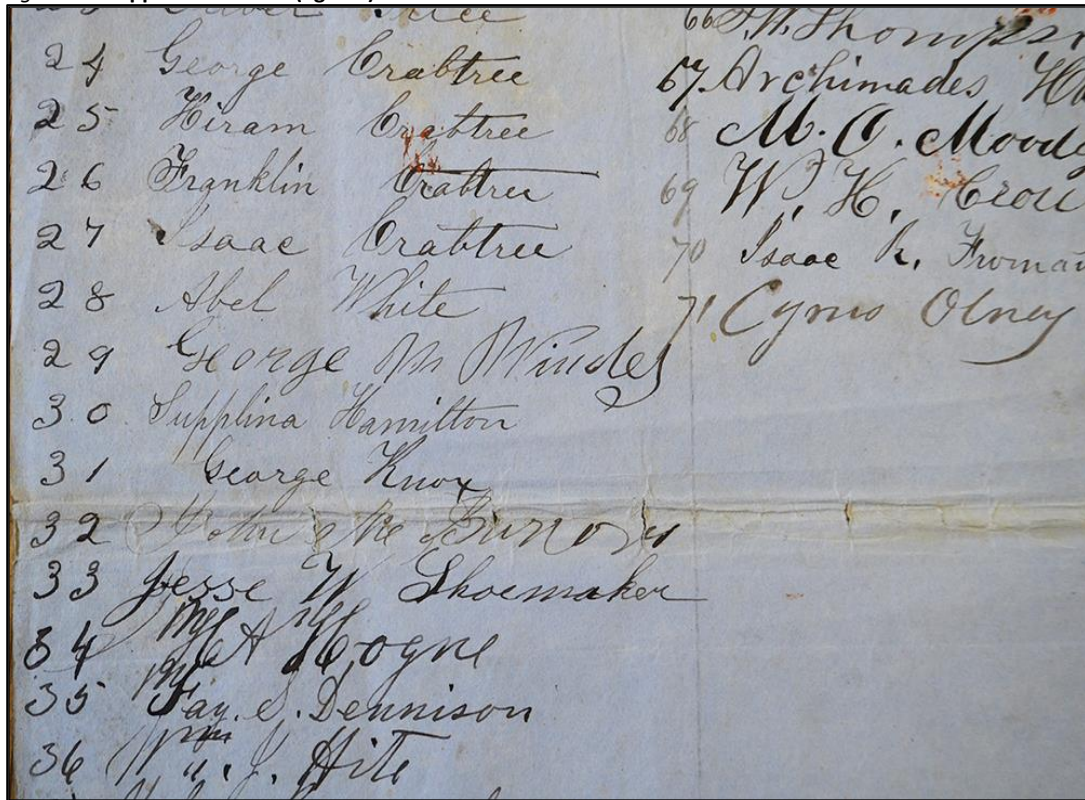 24 George Crabtree
25 Hiram Crabtree
26 Franklin Crabtree
27 Isaac Crabtree
28 Abel White
29 George M
30 Supplina Hamilton
31 George Knox
32 John
33 Jesse W Shoemaker
34 A Hogne
35 Fay. S. Dennison
36 Wm. J. Hite
66 Thomps
67. Archimades
68 M. O. Moody
69 W. H.
70 Isaac R. Froman
71 Cyrus Olney